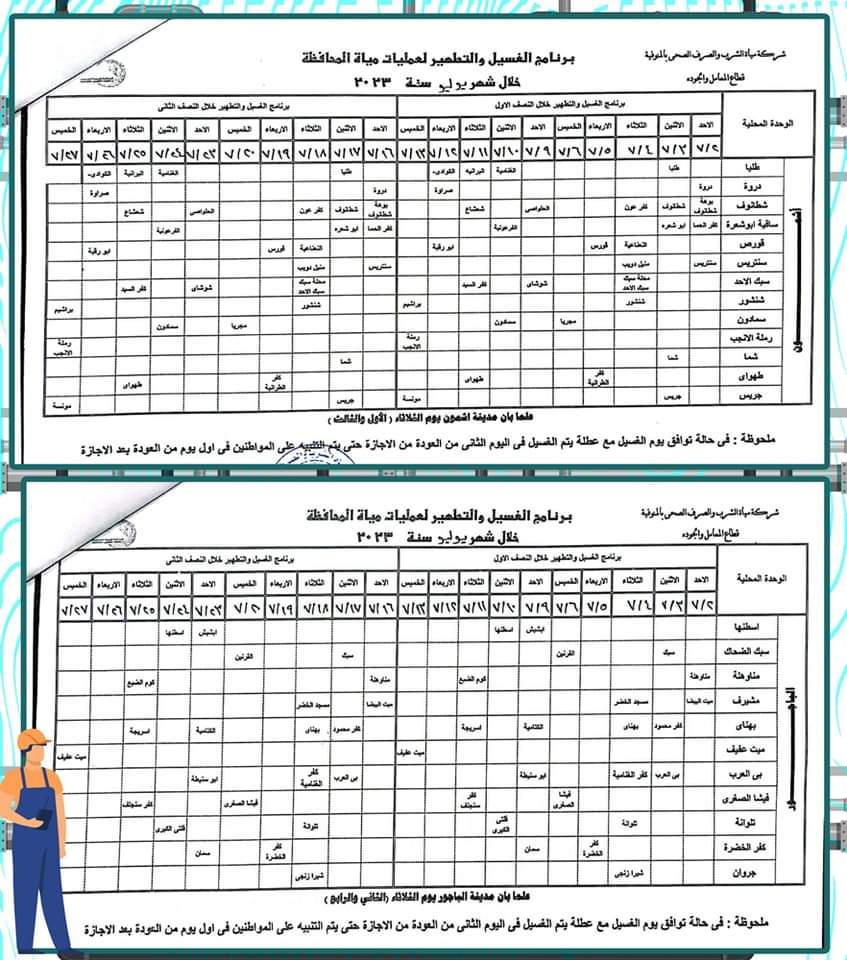 شركة مياة الشرب والصرف الصحى بالمنوفية
قطاع المعامل والجوده
برنامج الغسيل والتطهير لعمليات مياة المحافظة
خلال شهر يوليو سنة ٢٠٢٣
الوحدة المحلية
برنامج الغسيل والتطهير خلال النصف الاول
برنامج الغسيل والتطهير خلال النصف الثانى
الاحد الاثنين الثلاثاء الاربعاء الخميس الاحد الاثنين الثلاثاء الاربعاء الخميس الاحد الاثنين الثلاثاء الاربعاء الخميس الاحد الاثنين الثلاثاء الاربعاء الخميس
٧/٢ ٧/٣ ٧/٤ ٧/٥ ٧/٦ ٧/٩ ٧/١٠ ٧/١١ ٧/١٢ ٧/١٣ ٧/١٦ ٧/١٧ ٧/١٨ ٧/١٩ ٧/٢٠ ٧/٢٣ ٧/٢٤ ٧/٢٥ ٧/٢٦ ٧/٢٧
أشمــــون
طليا طليا الغنامية البرانية الكوادى- طليا الغنامية البرانية الكوادى-
دروة دروة صراوة دروة صراوة
شطانوف بوهة شطانوف شطانوف كفر عون الحلواصى شعشاع بوهة شطانوف شطانوف كفر عون الحلواصى شعشاع
ساقية ابوشعرة كفر الحما ابو شعره الفرعونية كفر الحما ابو شعره الفرعونية
قورص النعناعية قورس ابو رقبة النعناعية قورس ابو رقبة
سنتريس سنتريس منيل دويب سنتريس منيل دويب
سبك الاحد محلة سبك سبك الاحد شوشاى كفر السيد محلة سبك سبك الاحد شوشاى كفر السيد
شنشور شنشور براشيم شنشور براشيم
سمادون مجريا سمادون مجريا سمادون
رملة الانجب رملة الانجب رملة الانجب
شما شما شما
طهواى كفر الطرانية طهواى كفر الطرانية طهواى
جريس جريس مونسة جريس مونسة
علما بان مدينة اشمون يوم الثلاثاء ( الأول والثالث )
ملحوظة : فى حالة توافق يوم الغسيل مع عطلة يتم الغسيل فى اليوم الثانى من العودة من الاجازة حتى يتم التنبيه على المواطنين فى اول يوم من العودة بعد الاجازة
شركة مياة الشرب والصرف الصحى بالمنوفية
قطاع المعامل والجوده
برنامج الغسيل والتطهير لعمليات مياة المحافظة
خلال شهر يوليو سنة ٢٠٢٣
الوحدة المحلية
برنامج الغسيل والتطهير خلال النصف الاول
برنامج الغسيل والتطهير خلال النصف الثانى
الاحد الاثنين الثلاثاء الاربعاء الخميس الاحد الاثنين الثلاثاء الاربعاء الخميس الاحد الاثنين الثلاثاء الاربعاء الخميس الاحد الاثنين الثلاثاء الاربعاء الخميس
٧/٢ ٧/٣ ٧/٤ ٧/٥ ٧/٦ ٧/٩ ٧/١٠ ٧/١١ ٧/١٢ ٧/١٣ ٧/١٦ ٧/١٧ ٧/١٨ ٧/١٩ ٧/٢٠ ٧/٢٣ ٧/٢٤ ٧/٢٥ ٧/٢٦ ٧/٢٧
الباجــــور
اسطنها ابشيش اسطنها ابشيش اسطنها
سبك الضحاك سبك القرنين سبك القرنين
مناوهلة مناوهلة كوم الضبع مناوهلة كوم الضبع
مشيرف ميت البيضا مسجد الخضر ميت البيضا مسجد الخضر
بهناى كفر محمود بهناى الكتامية اسريجة كفر محمود بهناى الكتامية اسريجة
ميت عفيف ميت عفيف ميت عفيف
بى العرب بى العرب كفر الغنامية ابو سنيطة بى العرب كفر الغنامية ابو سنيطة
فيشا الصغرى فيشا الصغرى كفر سنجلف فيشا الصغرى كفر سنجلف
تلوانة تلوانة قلتى الكبرى تلوانة قلتى الكبرى
كفر الخضرة كفر الخضرة سمان كفر الخضرة سمان
جروان شبرا زنجى شبرا زنجى
علما بان مدينة الباجور يوم الثلاثاء (الثاني والرابع )
ملحوظة : فى حالة توافق يوم الغسيل مع عطلة يتم الغسيل فى اليوم الثانى من العودة من الاجازة حتى يتم التنبيه على المواطنين فى اول يوم من العودة بعد الاجازة